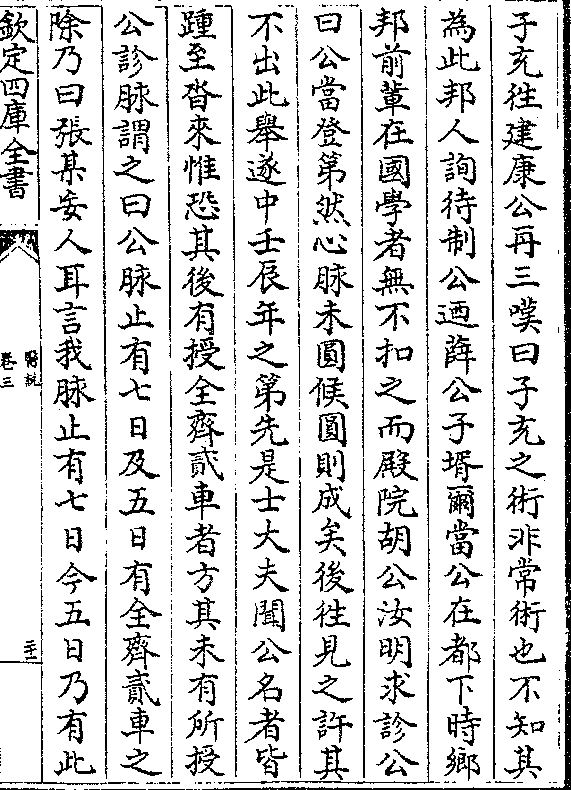 子充徃建康公再三嘆曰子充之術非常術也不知其
為此邦人詢待制公廼薛公子壻爾當公在都下時鄉
邦前輩在國學者無不扣之而殿院胡公汝明求診公
曰公當登第然心脉未圓候圓則成矣後徃見之許其
不出此舉遂中壬辰年之第先是士大夫聞公名者皆
踵至沓來惟恐其後有授全齊貳車者方其未有所授
公診脉謂之曰公脉止有七日及五日有全齊貳車之
除乃曰張某妄人耳言我脉止有七日今五日乃有此
欽定四庫全書
醫説
卷三
二十一